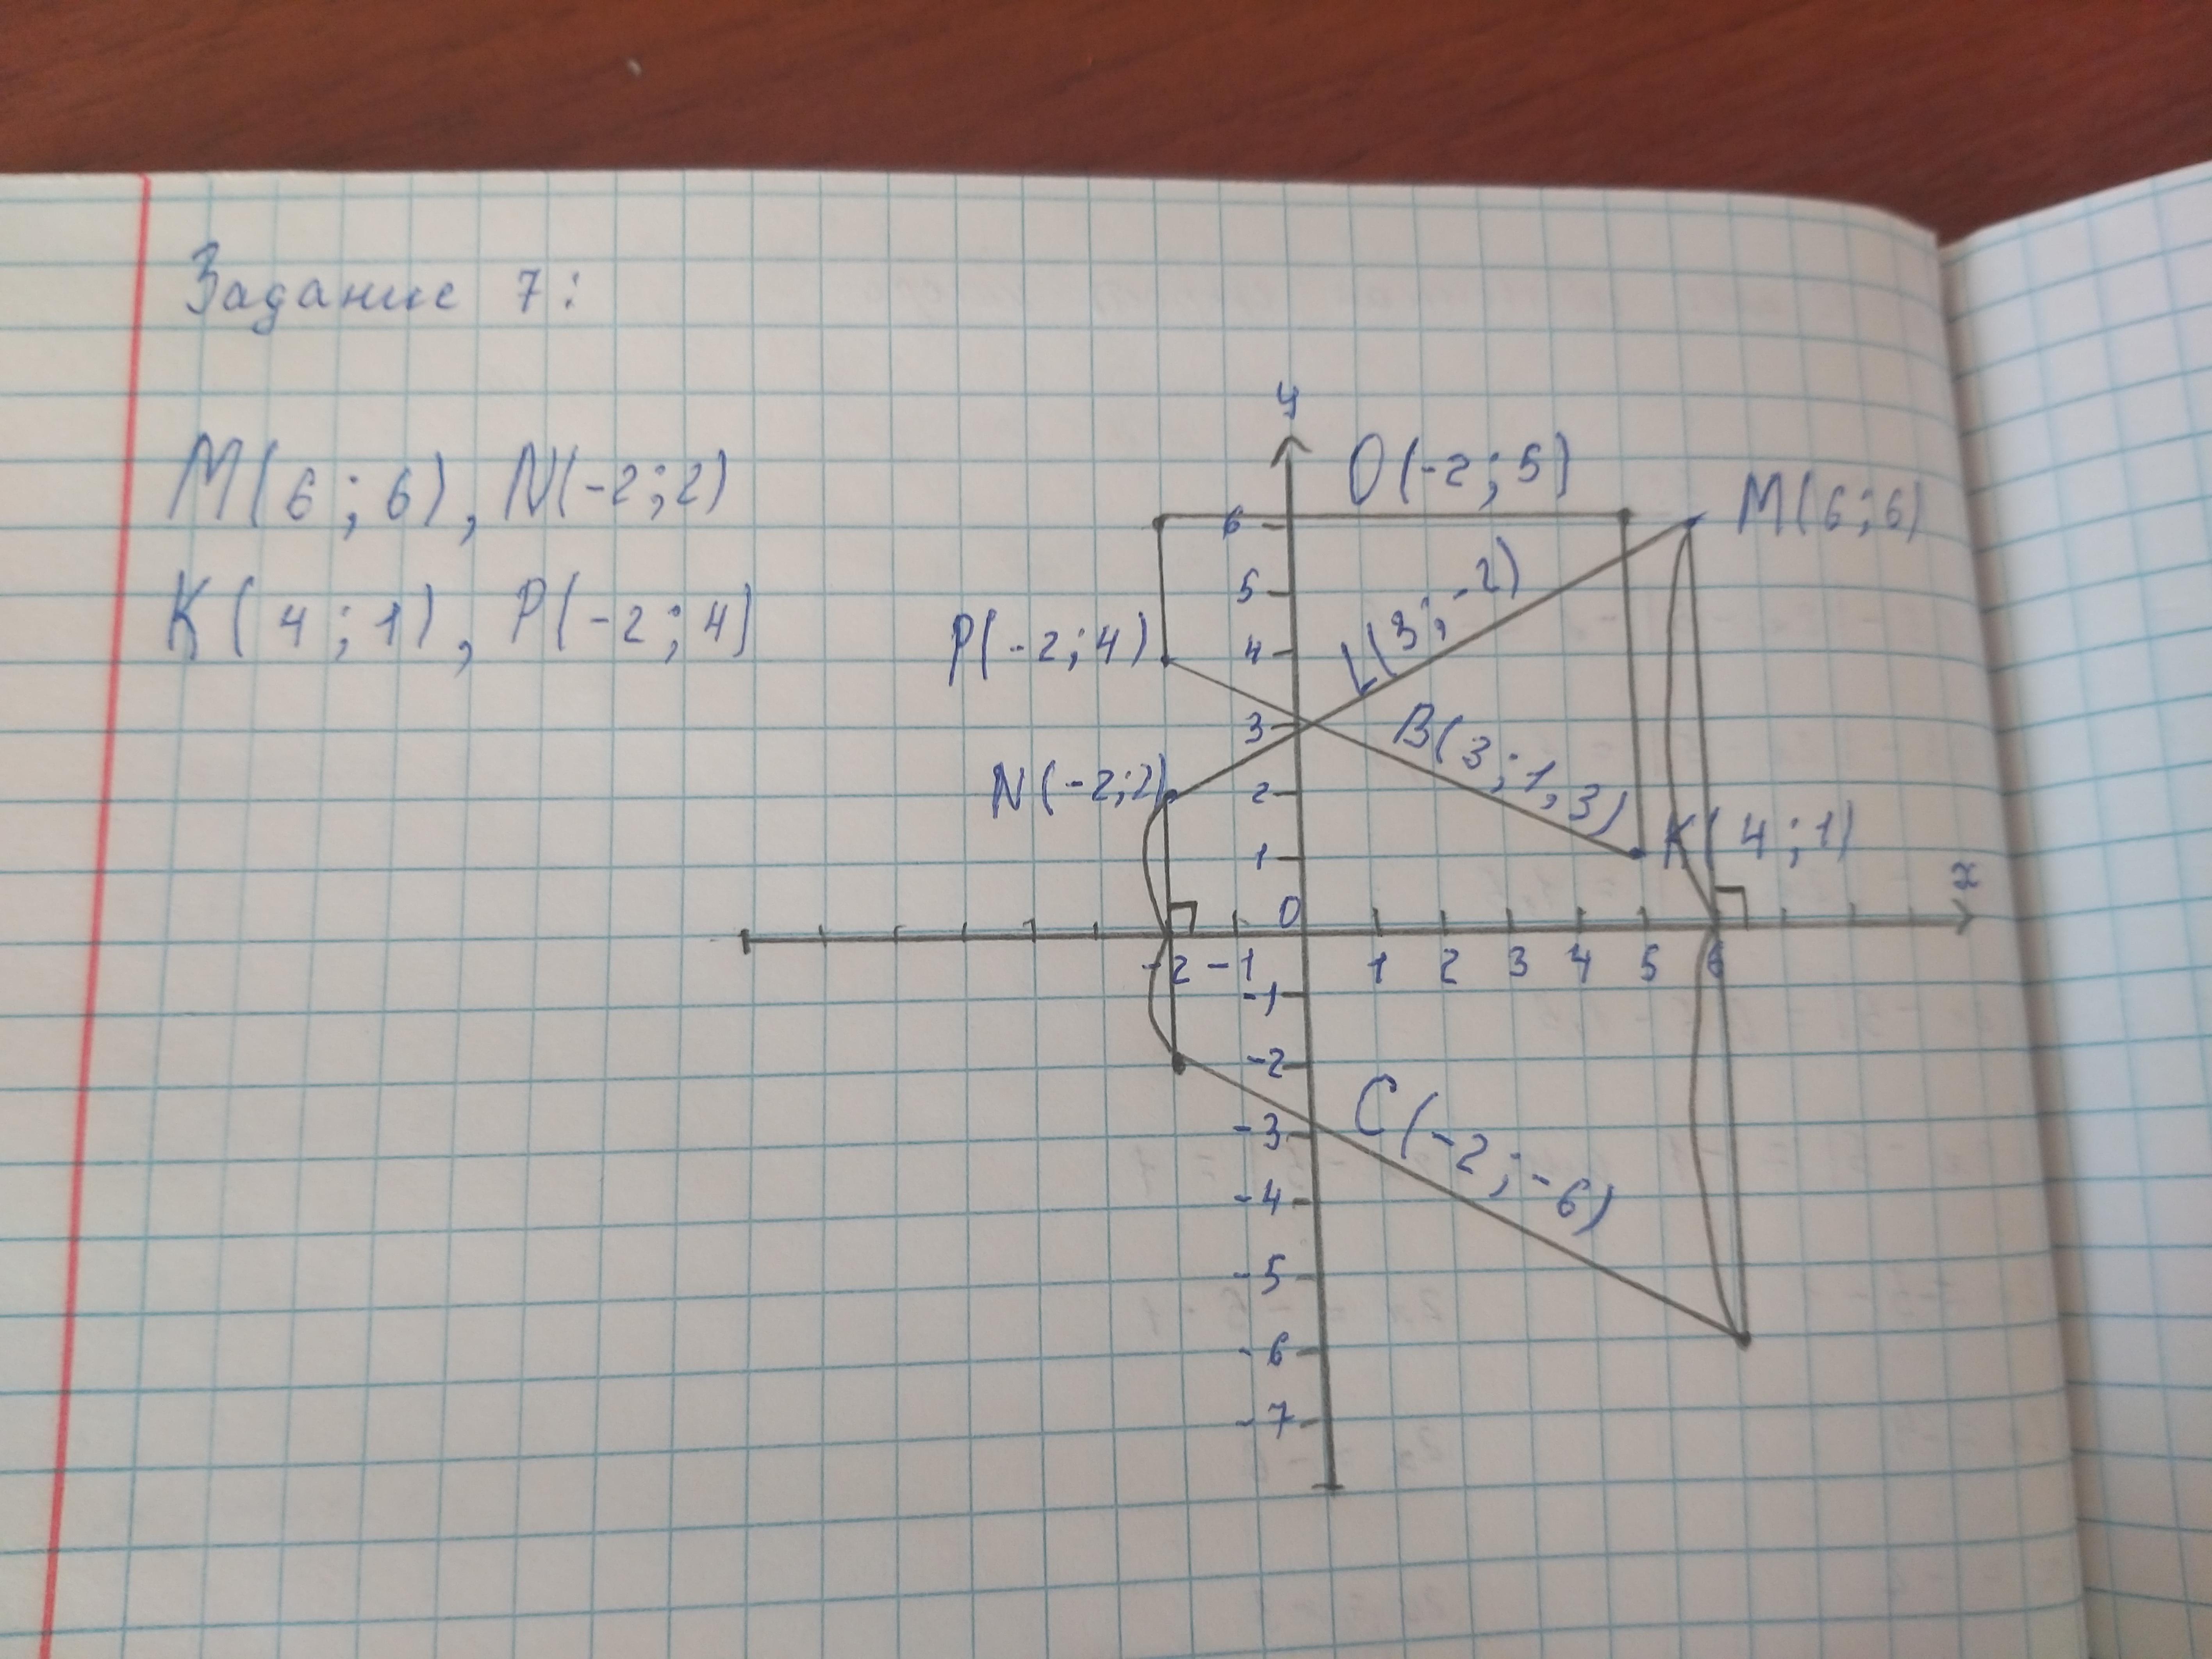 Задание 7:
M(6;6), N(-2;2)
K(4;1), P(-2;4)
y
O(-2;5)
M(6;6)
6
(3;-2)
5
P(-2;4)
4
3
B(3;1,3)
N(-2;2)
2
K(4;1)
1
x
0
-2 -1 1 2 3 4 5 6
-1
-2
C(-2;-6)
-3
-4
-5
-6
-7